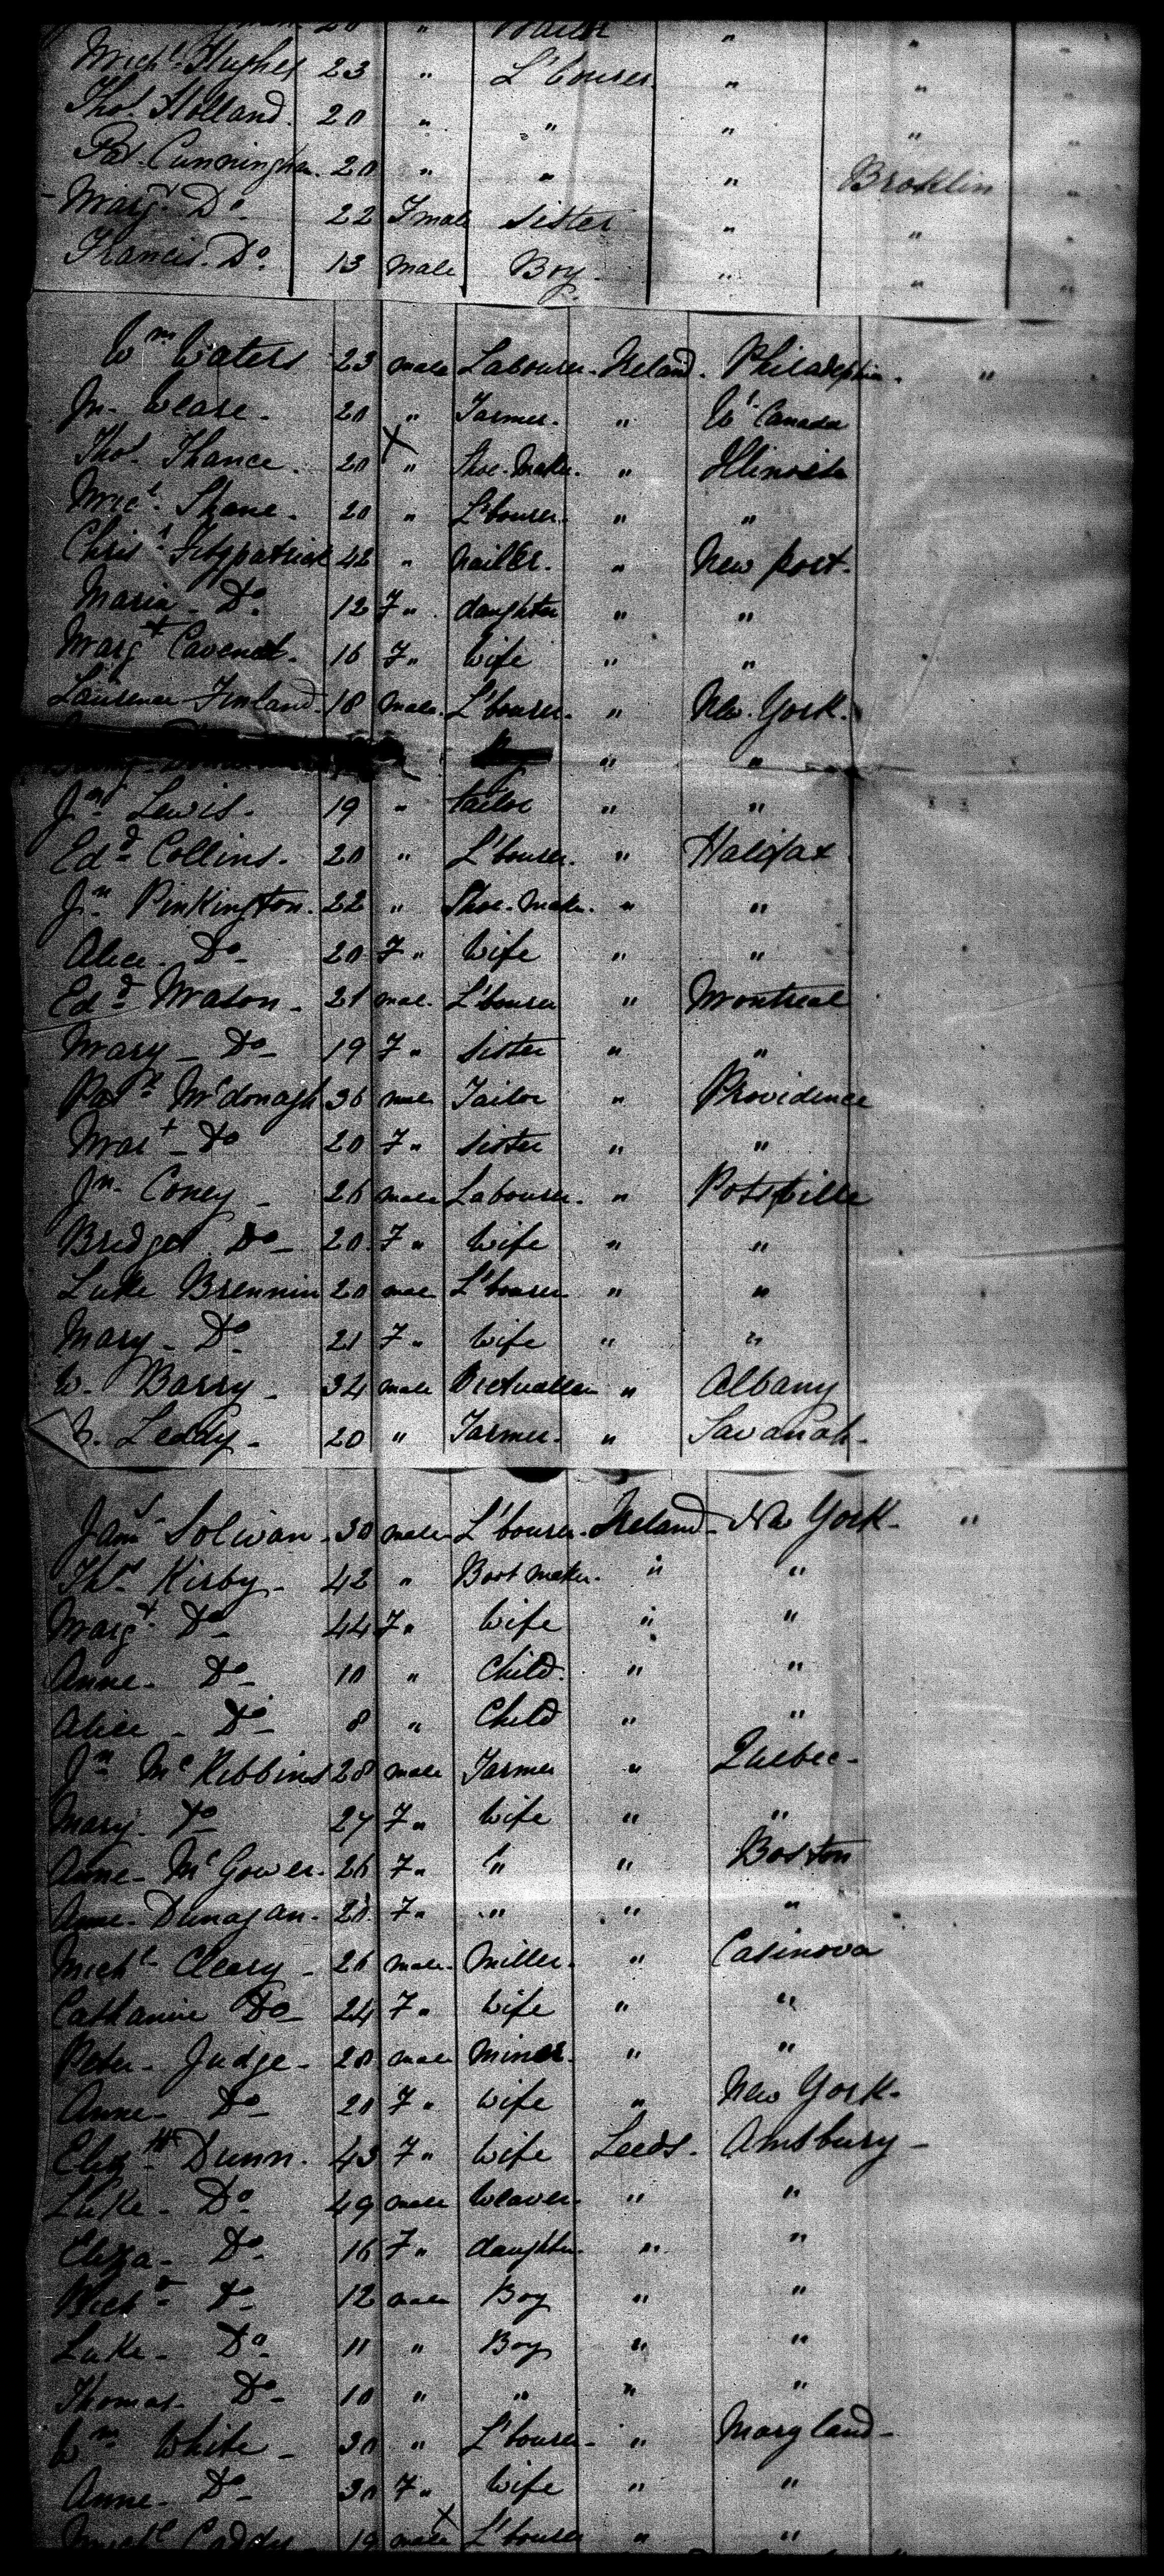 20 " Tailor " "
Michl. Hughes 23 " L'bourer. " " "
Thos. Holland. 20 " " " " "
Pat. Cunningham. 20 " " " Broklin "
Margt. Do. 22 Fmale Sister " " "
Francis. Do. 13 male Boy. " " "
Wm. Waters 23 male Labourer. Ireland. Philadelphia. "
Jn. Wease. 20 " Farmer. " Wt. Canada
Thos. Thance. 20 " Shoe-Maker. " Illinois
Micl. Shane. 20 " L'bourer. " "
Christ. Fitzpatrick 42 " nailer. " New port.
Maria - Do. 12 F " daughter " "
Margt. 16 F " Wife " "
Laurence 18 male. L'bourer. " New York.
" "
Jas. Lewis. 19 " tailor " "
Edd. Collins. 20 " L'bourer. " Halifax
Jn. Pinkington. 22 " Shoe-Maker. " "
Alice - Do - 20 F " Wife " "
Edd. Mason - 21 male. L'bourer " Montreal
Mary - Do - 19 F " Sister " "
Patk. McDonagh 36 male Tailor " Providence
Mart - Do 20 F " Sister " "
Jn. Coney - 26 male Labourer. " Pottsville
Bridget Do - 20. F " Wife " "
Luke Brennin 20 male L'bourer " "
Mary - Do. 21 F " Wife " "
W. Barry - 34 male Victualler " Albany
Leddy - 20 " Farmer. " Savanah.
Jams. Solivan. 30 male L'bourer. Ireland - New York. "
Thos. Kirby - 42 " Boot Maker. " "
Margt. Do - 44 F " Wife " "
Anne - Do - 10 " Child. " "
Alice - Do - 8 " Child " "
Jn. McKibbins 28 male Farmer " Quebec -
Mary - Do - 27 F " Wife " "
Anne - McGower. 26 F " " " Boston
Anne - Dunagan. 20. F " " " "
Michl. Cleary - 26 male. Miller. " Casinova
Catharine Do - 24 F " Wife " "
Peter - Judge - 28 male Miner. " "
Anne - Do - 20 F " Wife " New York.
Elizth. Dunn. 43 F " Wife Leeds. Amsbury -
Luke - Do. 49 male Weaver. " "
Eliza - Do. 16 F " daughter. " "
Richd. Do - 12 male Boy " "
Luke - Do. 11 " Boy " "
Thomas - Do - 10 " " " "
Wm. White - 30 " L'bourer - " Maryland -
Anne - Do - 30 F " Wife " "
Michl. Caddy 19 male L'bourer " "